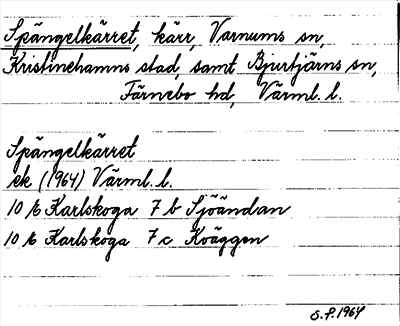 Spängelkärret, kärr, Varnums sn,
Kristinehamns stad, samt Bjurtjärns sn,
Färnebo hd, Värml. l.
Spängelkärret
ek (1964) Värml. l.
10 E Karlskoga 7 b Sjöändan
10 E Karlskoga 7 c Kväggen
S.P. 1964